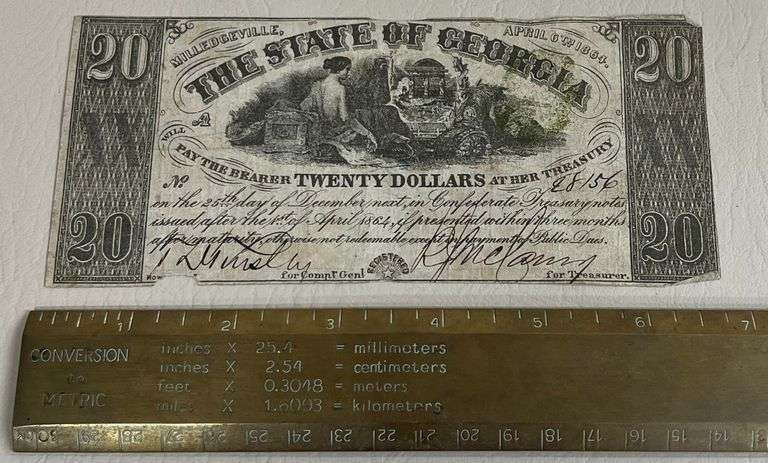 MILLEDGEVILLE, APRIL 6TH 1864.
THE STATE OF GEORGIA
20 20
A
XX XX
WILL PAY THE BEARER TWENTY DOLLARS AT HER TREASURY
No 28156
on the 25th day of December next, in Confederate Treasury notes
issued after the 1st of April 1864, if presented within three months
after maturity, otherwise not redeemable except in payment of Public Dues.
20 20
for Compt. Genl. REGISTERED for Treasurer.
1 2 3 4 5 6 7
CONVERSION to METRIC
inches X 25.4 = millimeters
inches X 2.54 = centimeters
feet X 0.3048 = meters
miles X 1.6093 = kilometers
30 29 28 27 26 25 24 23 22 21 20 19 18 17 16 15 14